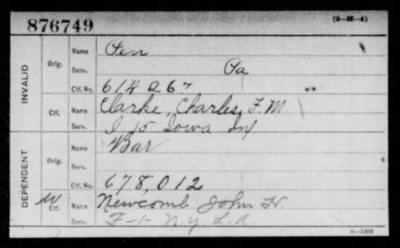 876749 (3-M-4)
Name Pen
Orig. Serv. Pa
INVALID Ctf. No. 614067 "
Name Clarke, Charles F. M
Ctf. Serv. I 15 Iowa Inf
Name War
Orig. Serv.
DEPENDENT Ctf. No. 678,012
W Ctf. Name Newcomb John H
Serv. F-1- N.Y. L.A